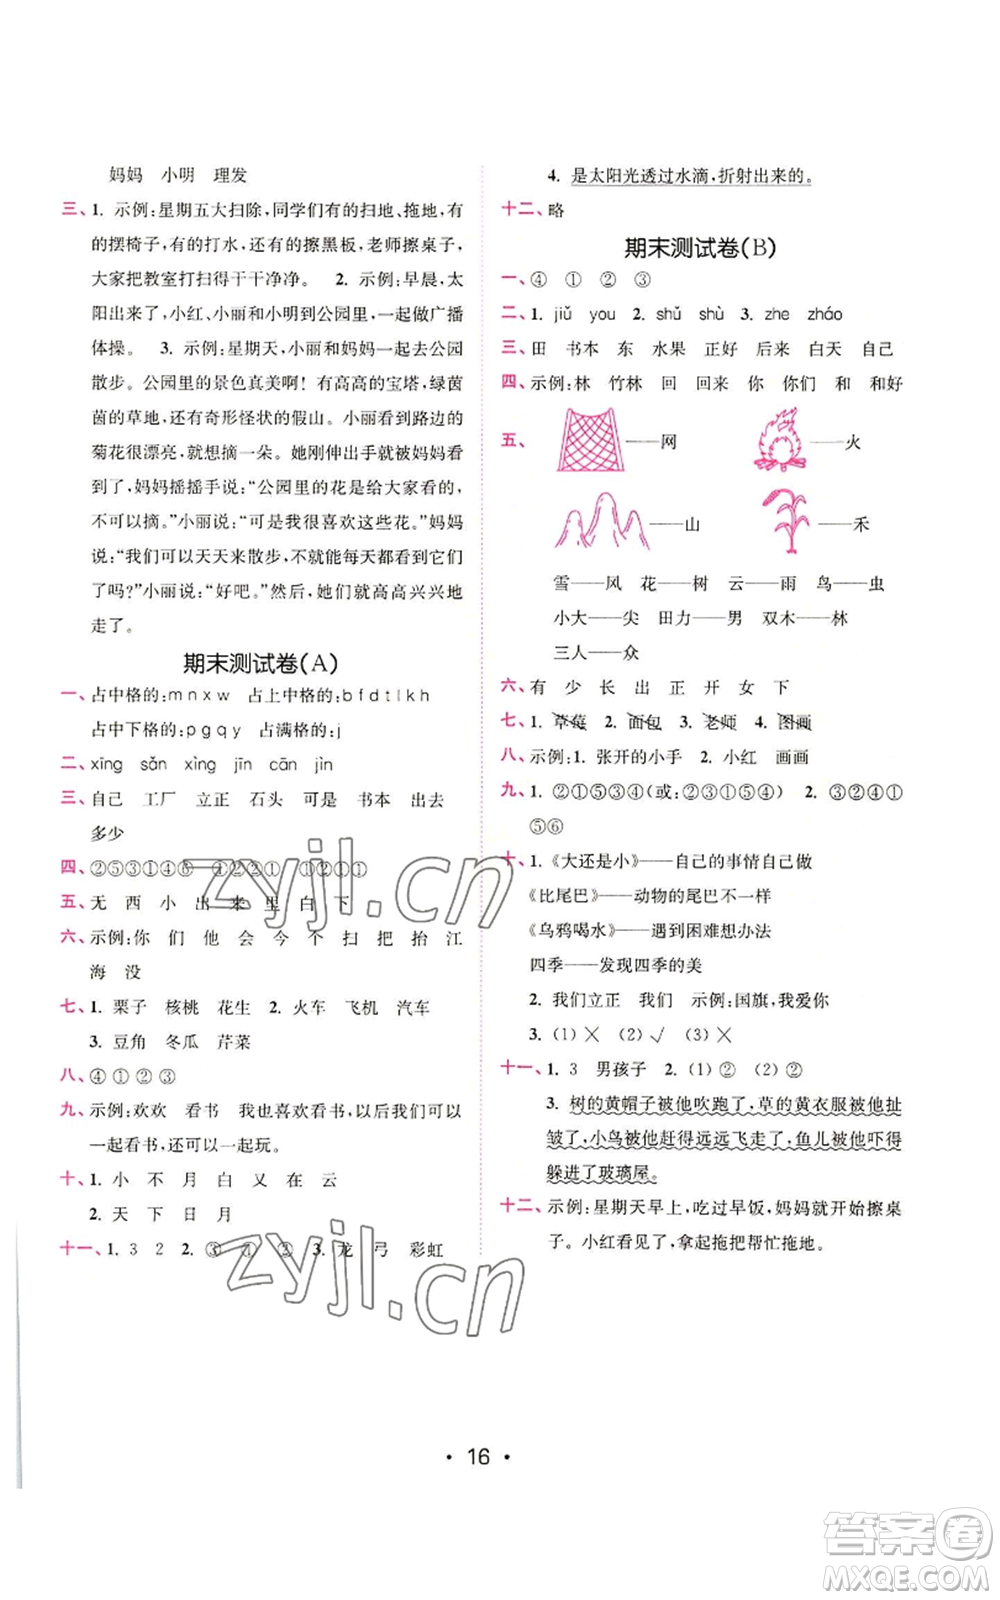 妈妈 小明 理发
三、1. 示例:星期五大扫除,同学们有的扫地、拖地,有
的摆椅子,有的打水,还有的擦黑板,老师擦桌子,
大家把教室打扫得干干净净。 2. 示例:早晨,太
阳出来了,小红、小丽和小明到公园里,一起做广播
体操。 3. 示例:星期天,小丽和妈妈一起去公园
散步。公园里的景色真美啊!有高高的宝塔,绿茵
茵的草地,还有奇形怪状的假山。小丽看到路边的
菊花很漂亮,就想摘一朵。她刚伸出手就被妈妈看
到了,妈妈摇摇手说:“公园里的花是给大家看的,
不可以摘。”小丽说:“可是我很喜欢这些花。”妈妈
说:“我们可以天天来散步,不就能每天都看到它们
了吗?”小丽说:“好吧。”然后,她们就高高兴兴地
走了。
期末测试卷(A)
一、占中格的:m n x w 占上中格的:b f d t l k h
占中下格的:p g q y 占满格的:j
二、xīng sǎn xìng jīn cān jìn
三、自己 工厂 立正 石头 可是 书本 出去
多少
四、②⑤③①④⑥ ①②②① ①②①①
五、无 西 小 出 来 里 白 下
六、示例:你 们 他 会 今 个 扫 把 抬 江
海 没
七、1. 栗子 核桃 花生 2. 火车 飞机 汽车
3. 豆角 冬瓜 芹菜
八、④ ① ② ③
九、示例:欢欢 看书 我也喜欢看书,以后我们可以
一起看书,还可以一起玩。
十、1. 小 不 月 白 又 在 云
2. 天 下 日 月
十一、1. 3 2 2. ③ ① ② 3. 龙 弓 彩虹
4. 是太阳光透过水滴,折射出来的。
十二、略
期末测试卷(B)
一、④ ① ② ③
二、1. jiǔ you 2. shǔ shù 3. zhe zháo
三、田 书本 东 水果 正好 后来 白天 自己
四、示例:林 竹林 回 回来 你 你们 和 和好
五、 ——网 ——火
——山 ——禾
雪——风 花——树 云——雨 鸟——虫
小大——尖 田力——男 双木——林
三人——众
六、有 少 长 出 正 开 女 下
七、1. 草莓 2. 面包 3. 老师 4. 图画
八、示例:1. 张开的小手 2. 小红 画画
九、1. ②①⑤③④(或:②③①⑤④) 2. ③②④①
⑤⑥
十、1.《大还是小》——自己的事情自己做
《比尾巴》——动物的尾巴不一样
《乌鸦喝水》——遇到困难想办法
四季——发现四季的美
2. 我们立正 我们 示例:国旗,我爱你
3. (1)× (2)√ (3)×
十一、1. 3 男孩子 2. (1)② (2)②
3. 树的黄帽子被他吹跑了,草的黄衣服被他扯
皱了,小鸟被他赶得远远飞走了,鱼儿被他吓得
躲进了玻璃屋。
十二、示例:星期天早上,吃过早饭,妈妈就开始擦桌
子。小红看见了,拿起拖把帮忙拖地。
zyjl.cn
zyjl.cn
• 16 •
答案圈
MXQE.COM